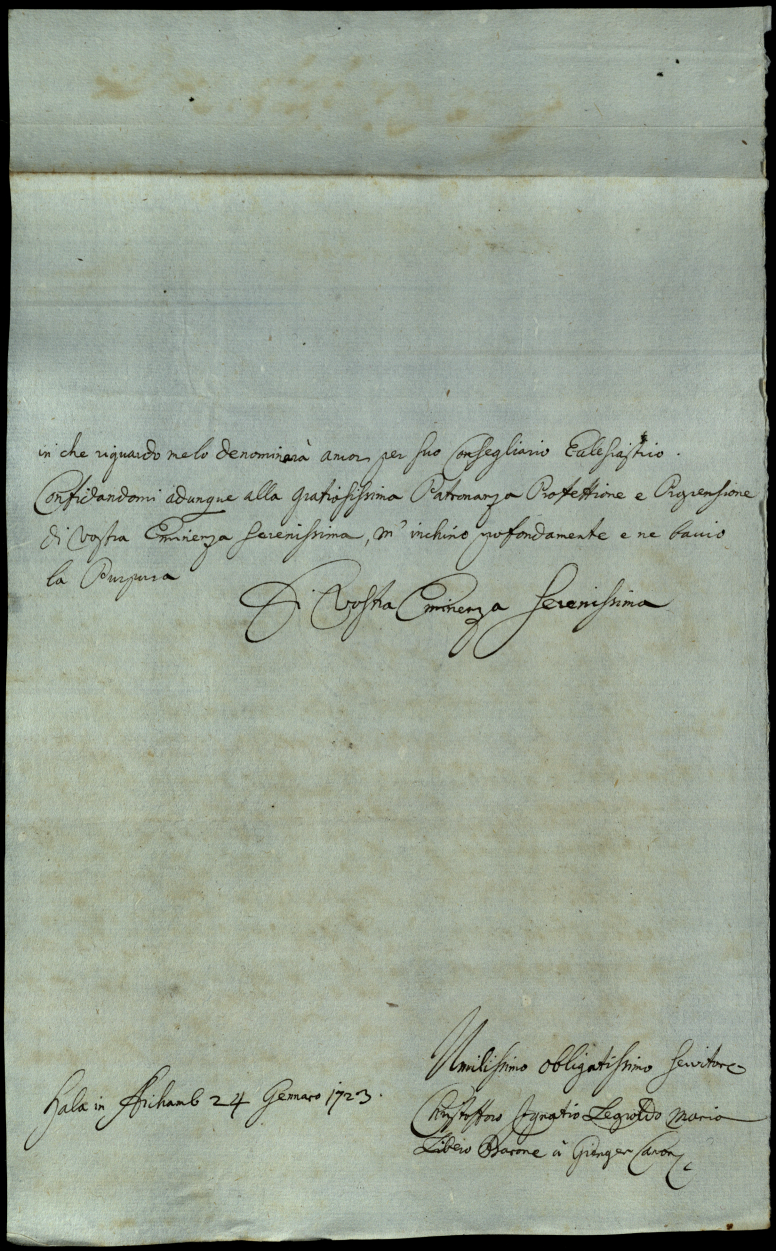 in che riguardo melo denominarà ancor per suo Consegliario Eclesiastico.
Confidandomi adunque alla gratiosissima Patronanza Protettione e Propensione
di Vostra Eminenza Serenissima, m' inchino profondamente e ne baccio
la Purpura
Di Vostra Eminenza Serenissima
Umilissimo obligatissimo Servitore
Halæ in 24 Gennaro 1723.
Christofforo Ignatio Leopoldo Maria
Libero Barone à Gienger Canon